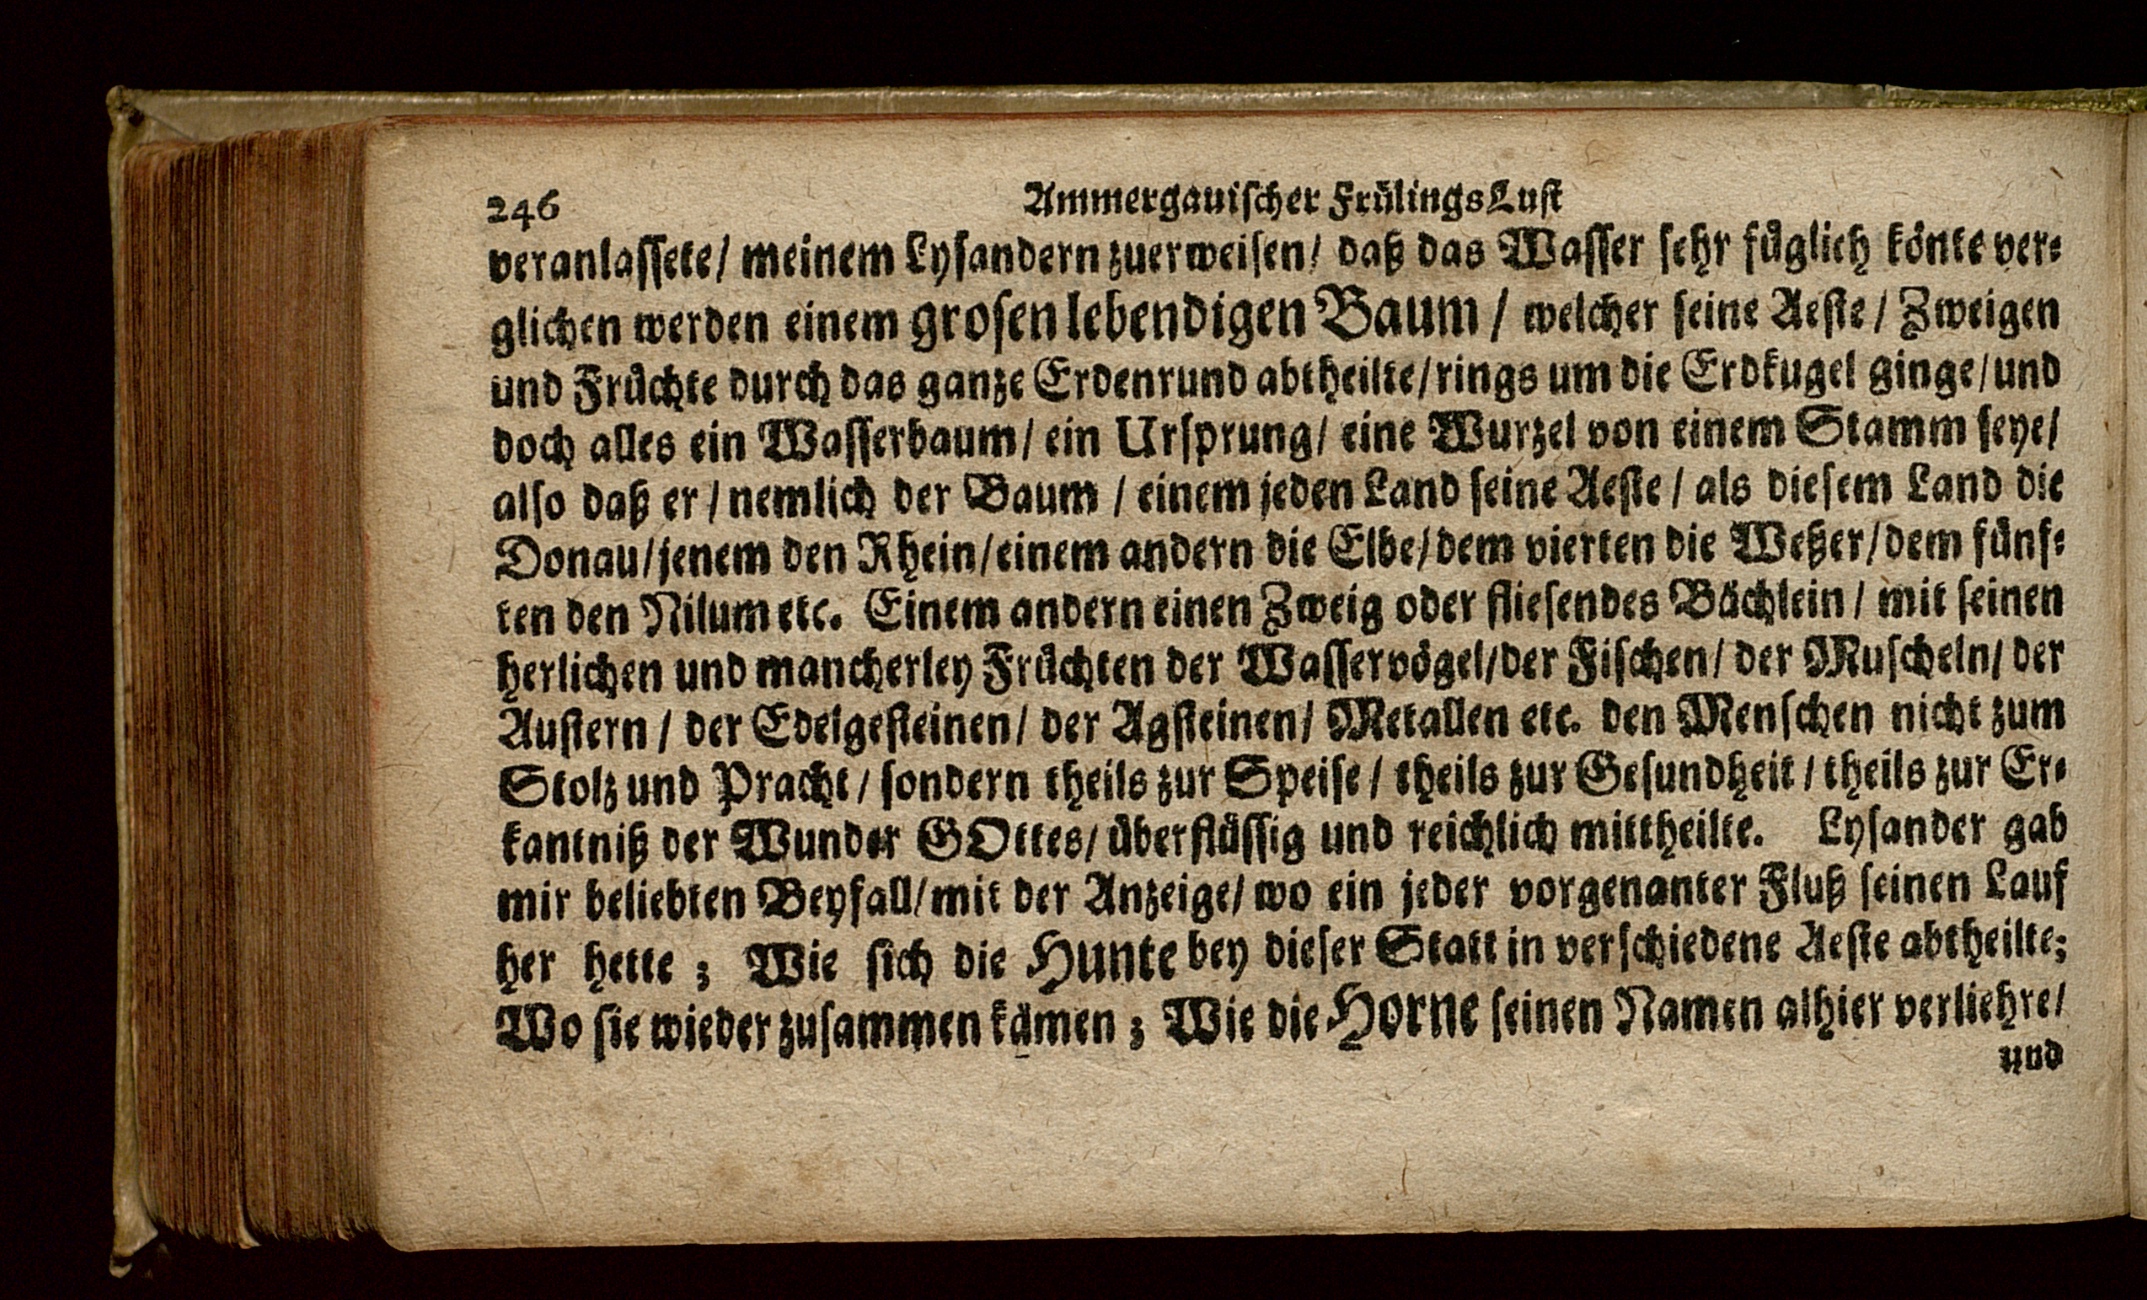 246
Ammergauiſcher FrülingsLuſt
veranlaſſete/ meinem Lyſandern zuerweiſen/ daß das Waſſer ſehr füglich könte ver⸗
glichen werden einem groſen lebendigen Baum / welcher ſeine Aeſte / Zweigen
und Früchte durch das ganze Erdenrund abtheilte/rings um die Erdkugel ginge/und
doch alles ein Waſſerbaum/ ein Urſprung/ eine Wurzel von einem Stamm ſeye/
alſo daß er / nemlich der Baum / einem jeden Land ſeine Aeſte / als dieſem Land die
Donau/jenem den Rhein/einem andern die Elbe/dem vierten die Weßer/dem fünf⸗
ten den Nilum etc. Einem andern einen Zweig oder flieſendes Bächlein / mit ſeinen
herlichen und mancherley Früchten der Waſſervögel/der Fiſchen/ der Muſcheln/ der
Auſtern / der Edelgeſteinen/ der Agſteinen/ Metallen etc. den Menſchen nicht zum
Stolz und Pracht/ ſondern theils zur Speiſe / theils zur Geſundheit / theils zur Er⸗
kantniß der Wunder GOttes/ überflüſſig und reichlich mittheilte. Lyſander gab
mir beliebten Beyfall/mit der Anzeige/ wo ein jeder vorgenanter Fluß ſeinen Lauf
her hette ; Wie ſich die Hunte bey dieſer Statt in verſchiedene Aeſte abtheilte;
Wo ſie wieder zuſammen kämen ; Wie die Horne ſeinen Namen alhier verliehre/
und